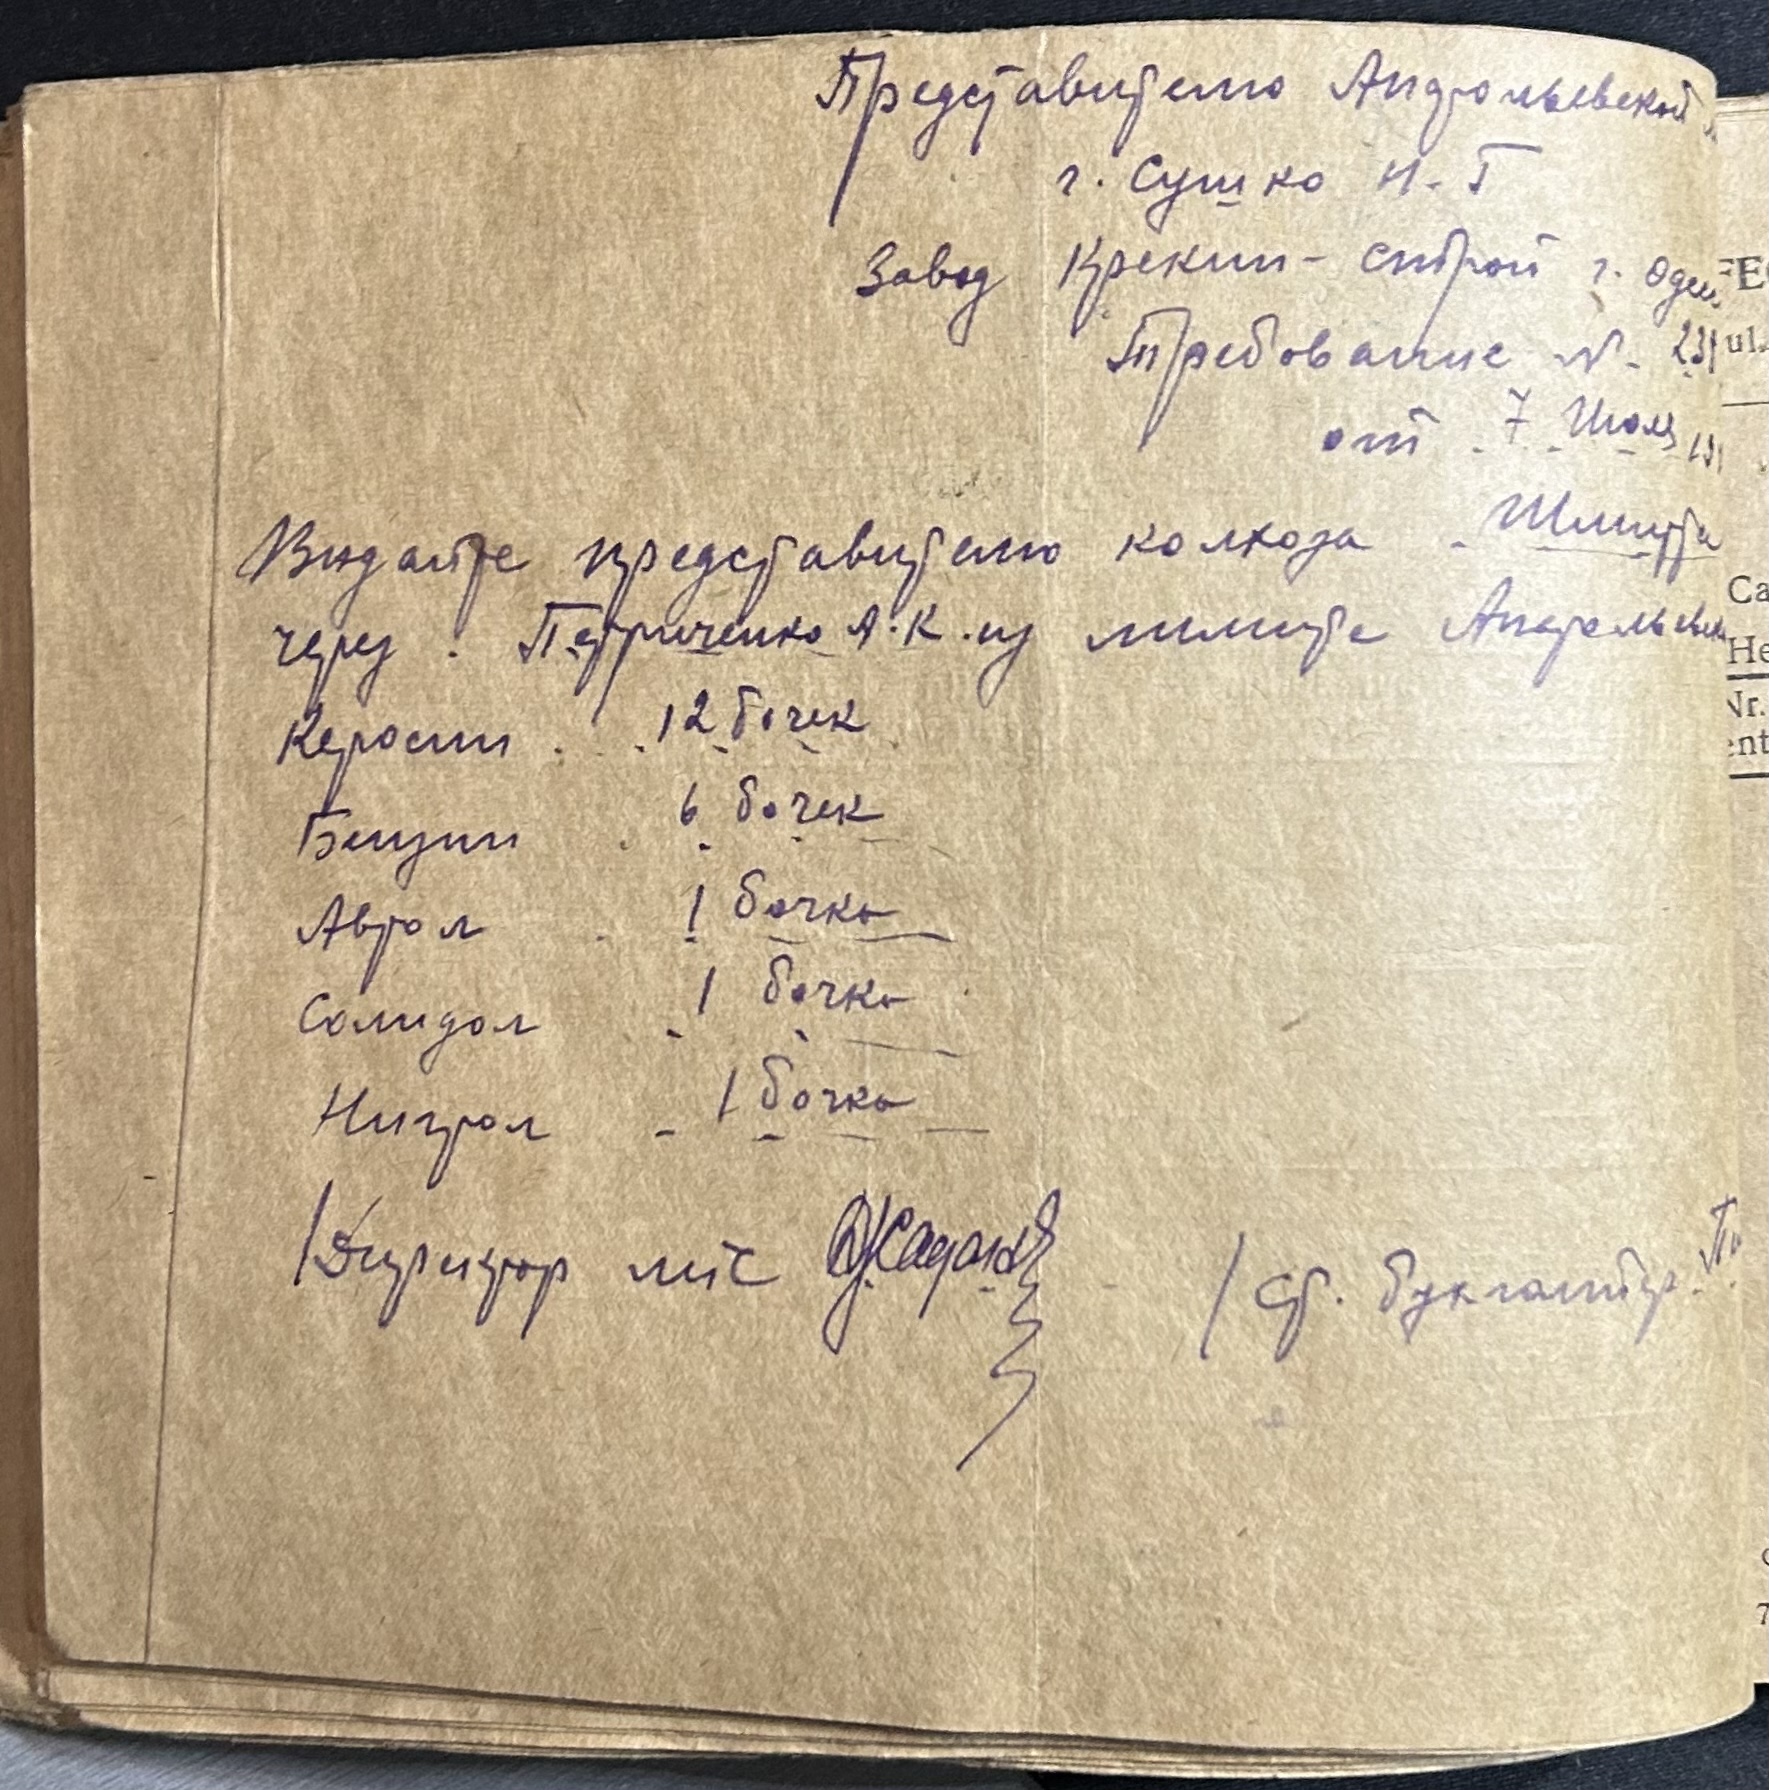 Представителю Анатольевской
г. Сушко Н. Г
Завод Крекин-строй г. Одес
Требование N. 231
от 7 Июля 19
Выдайте представителю колхоза Шмидта
через Петриченко А. К. из лимита Анатольевск
Керосин 12 бочек
Бензин 6 бочек
Автол 1 бочка
Солидол 1 бочка
Нигрол 1 бочка
/Директор мтс
/ Ст. бухгалтер
FE
ul.
Ca
He
Nr.
ent
7